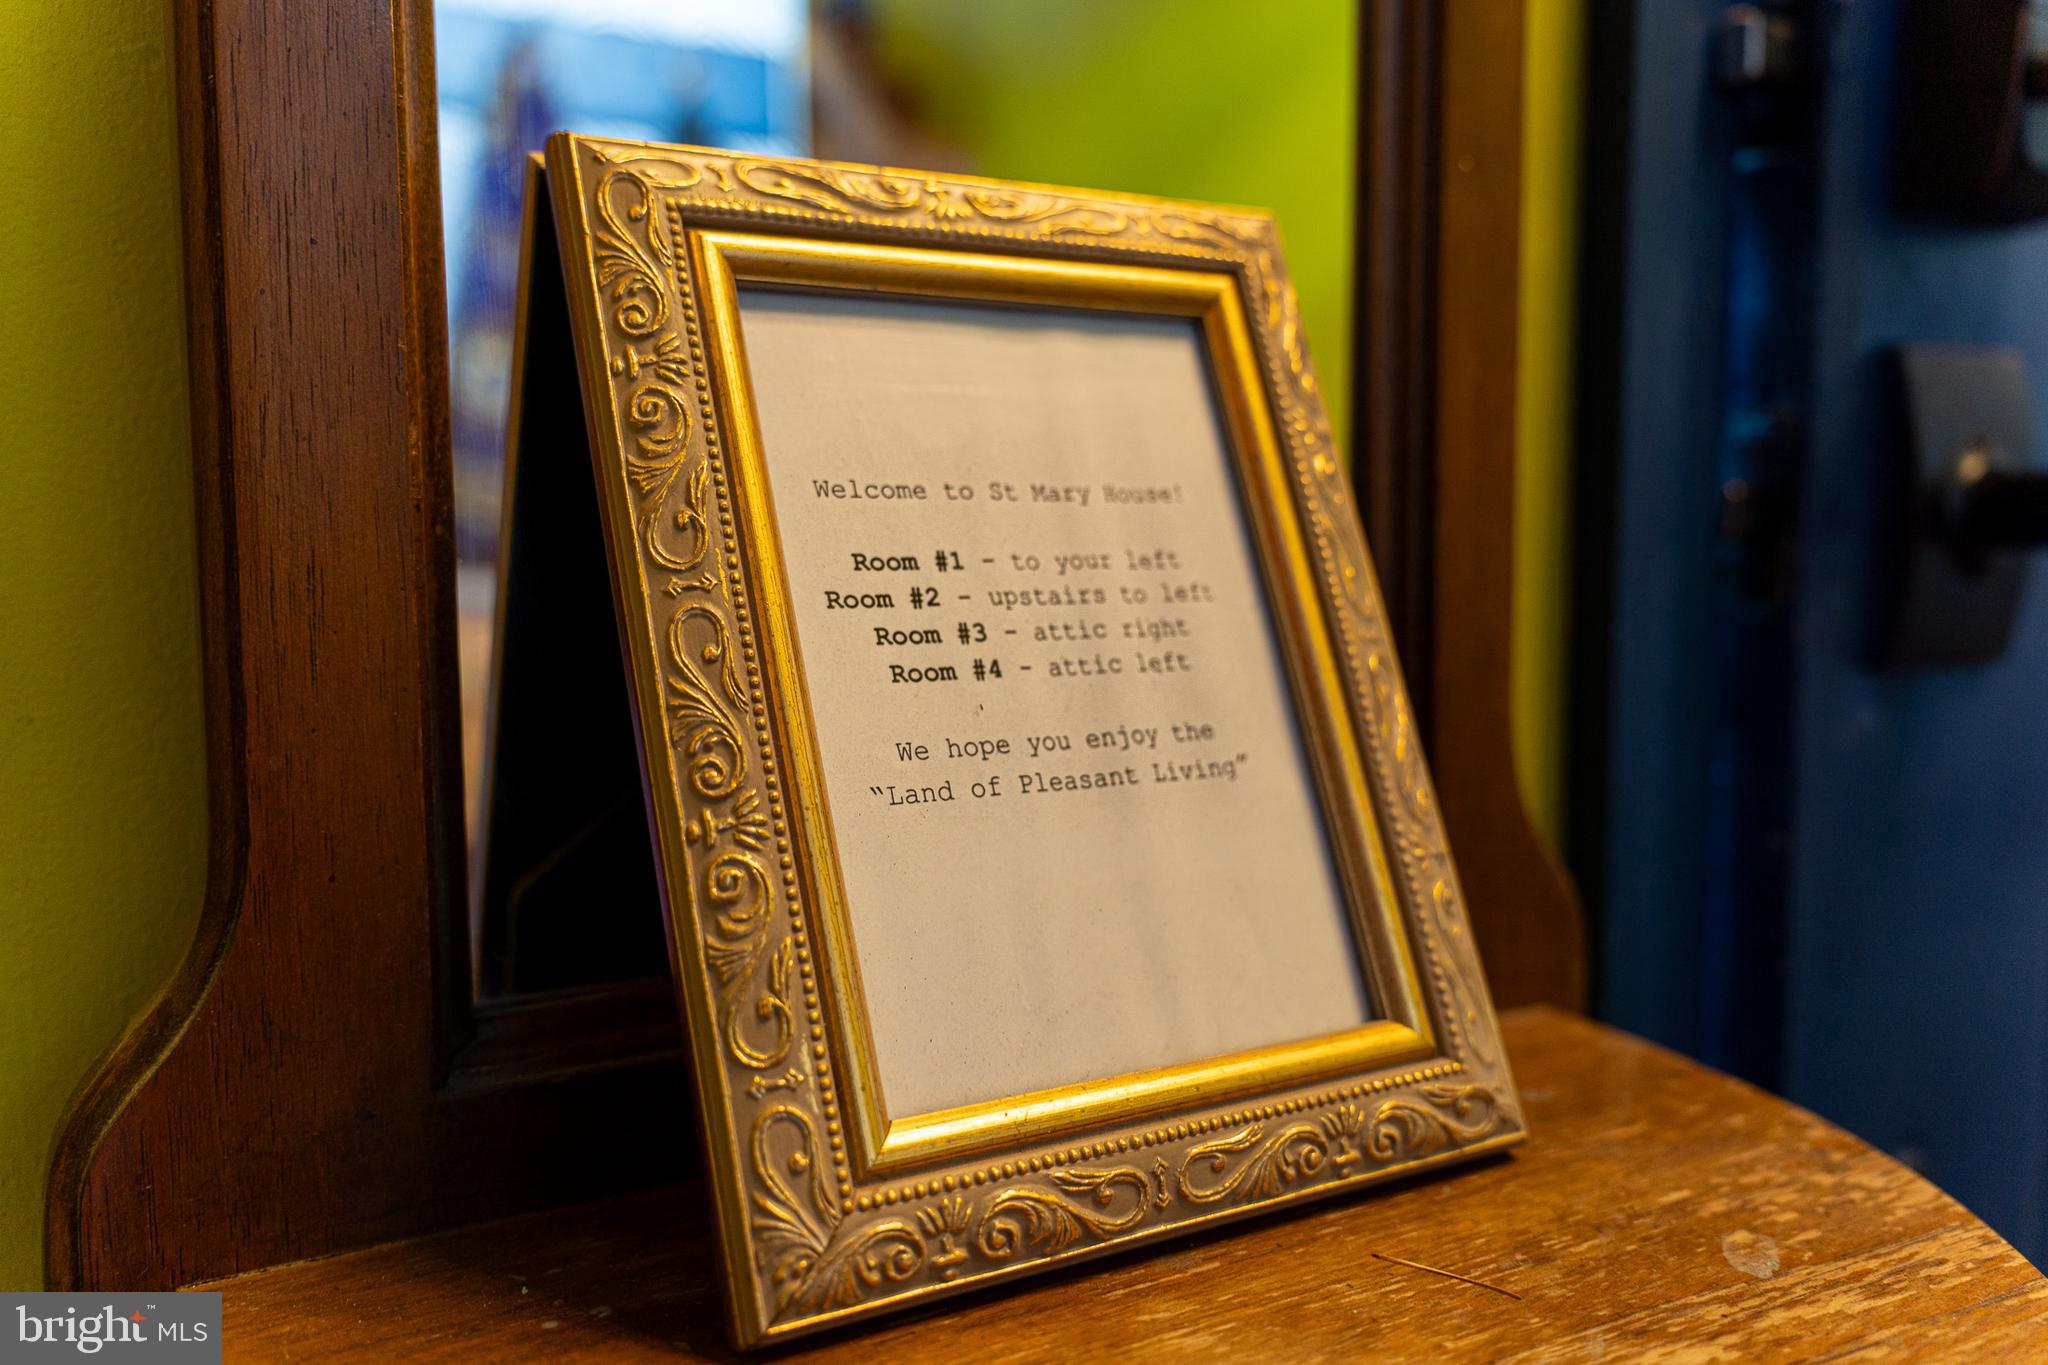 Welcome to St Mary House!
Room #1 - to your left
Room #2 - upstairs to left
Room #3 - attic right
Room #4 - attic left
We hope you enjoy the
“Land of Pleasant Living”
bright™ MLS